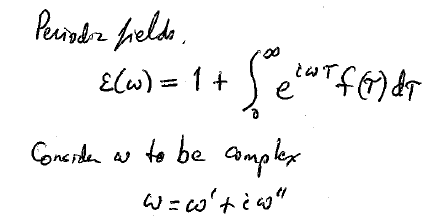 Periodic fields.
ε(ω) = 1 + ∫₀^∞ e^{iωτ} f(τ) dτ
Consider ω to be complex
ω = ω' + i ω''